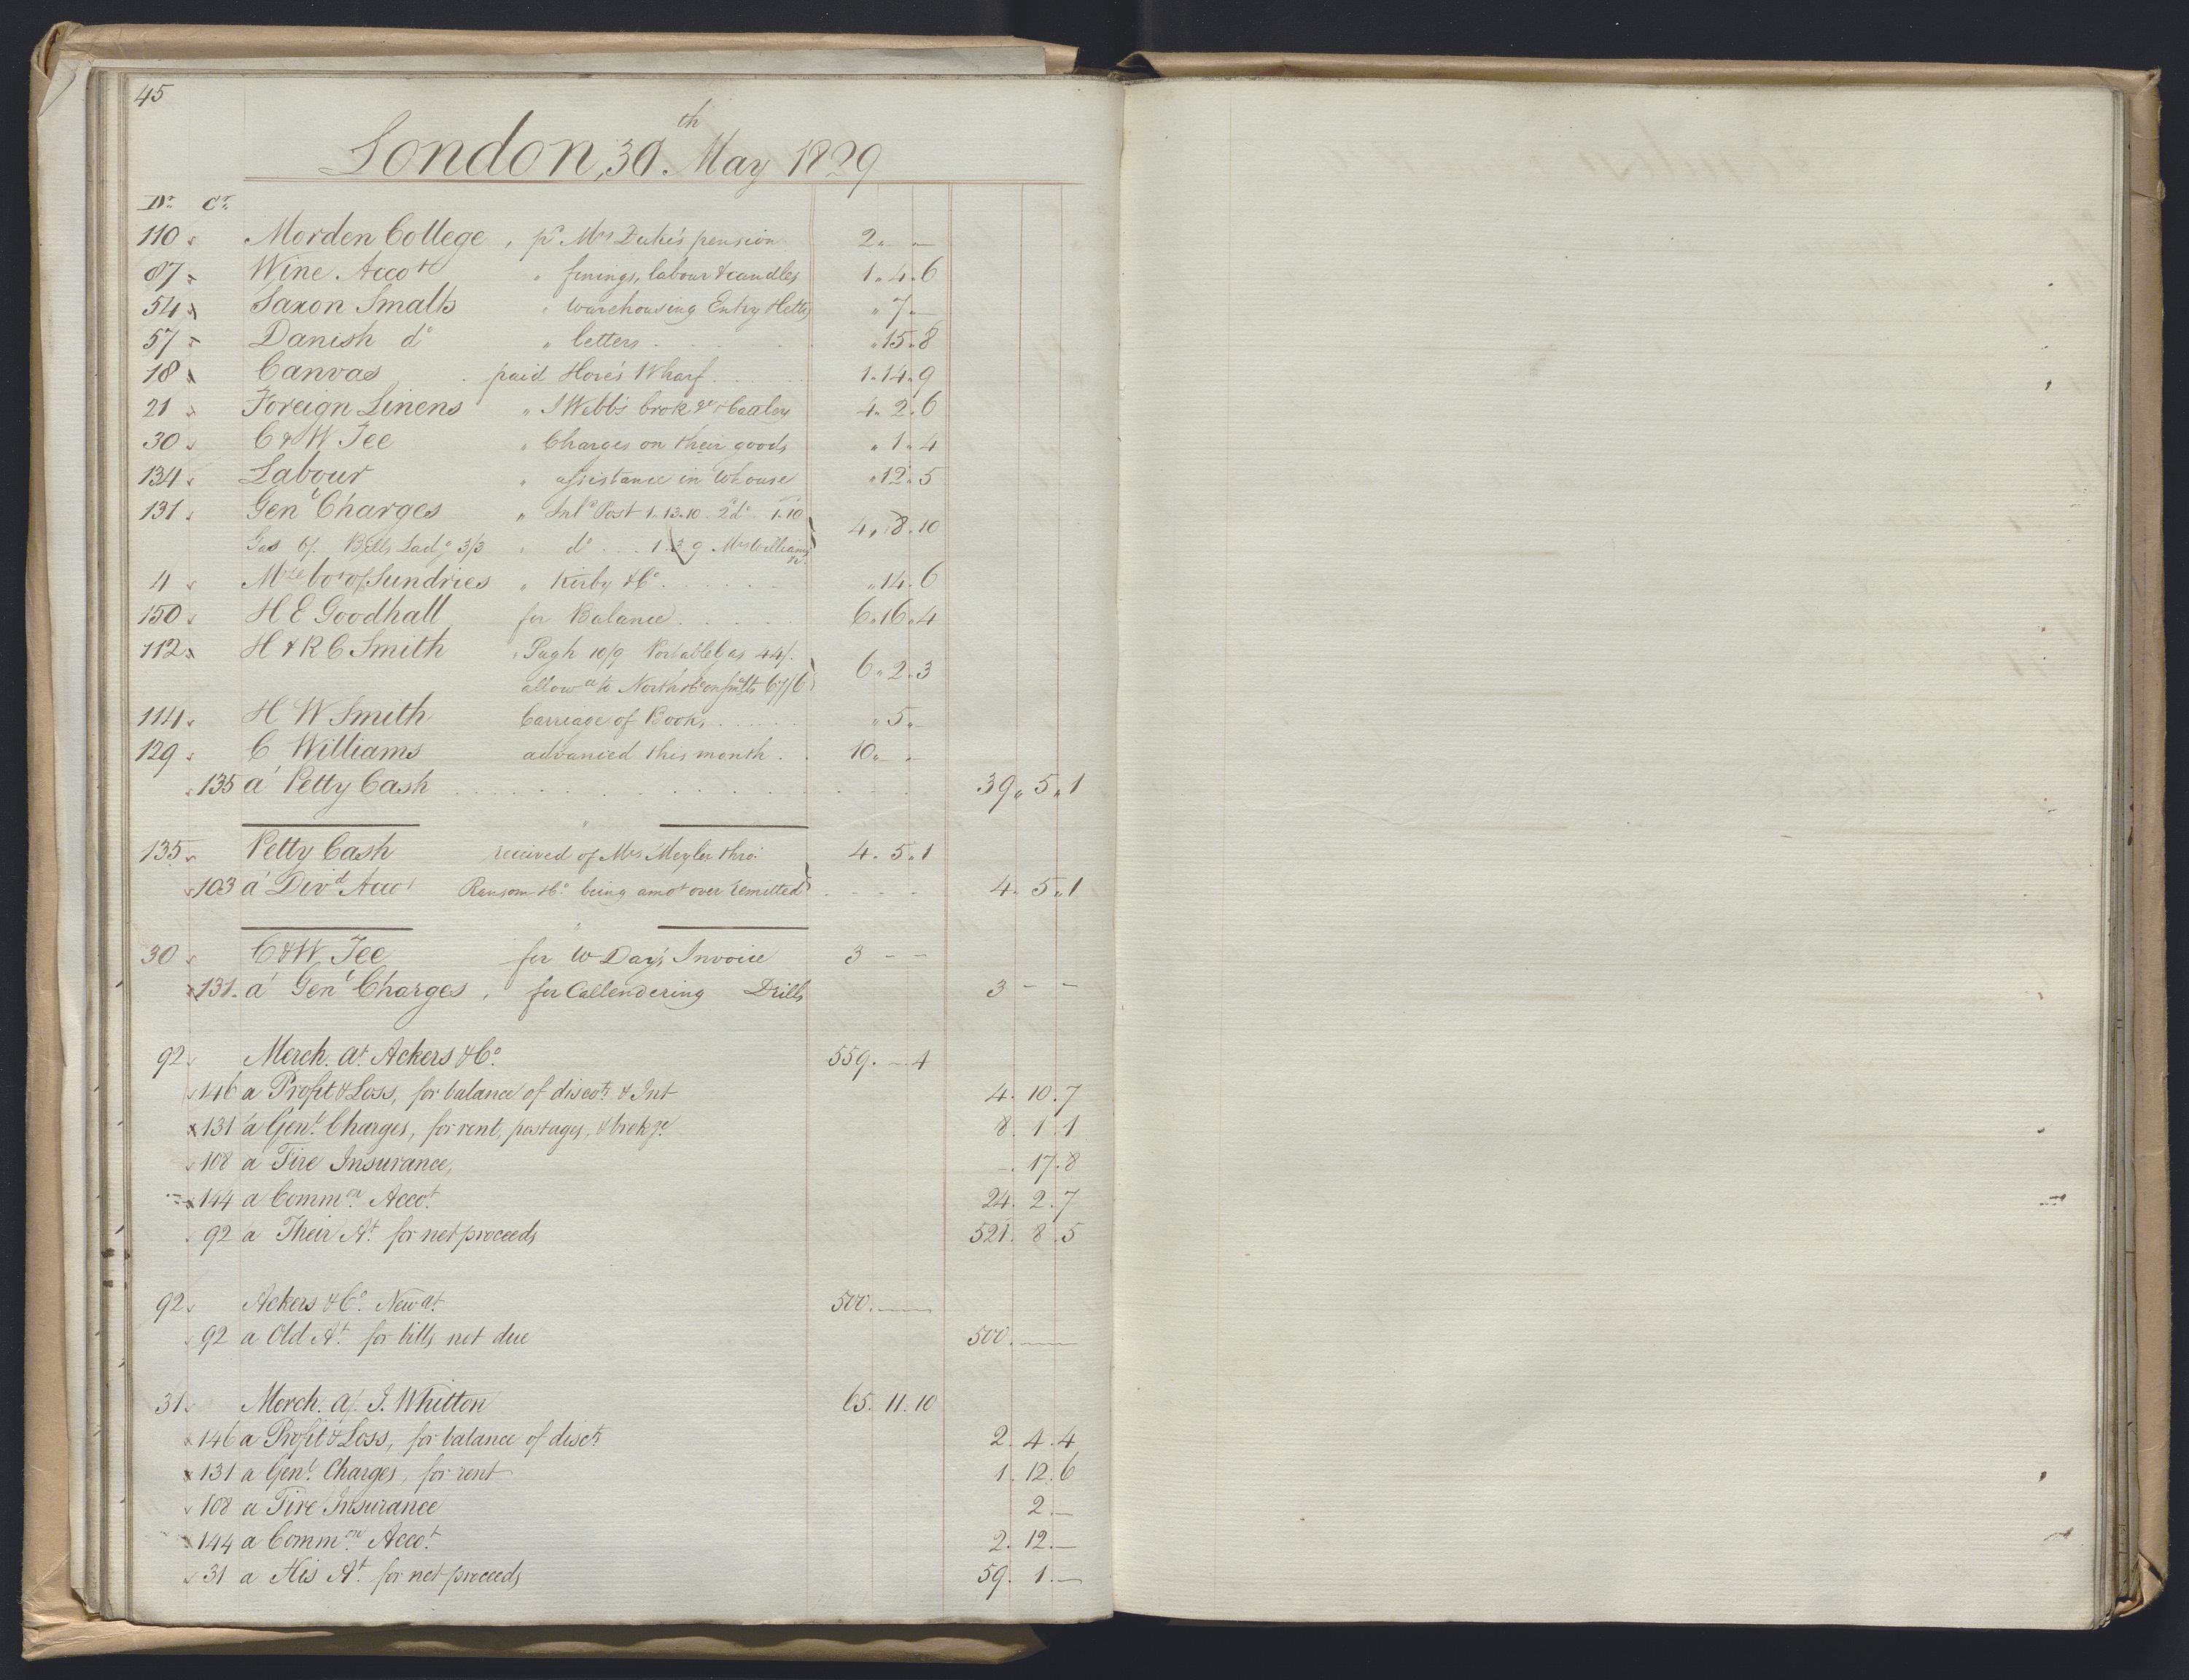 45
London, 30th May 1829
Dr. Cr.
110 Morden College, pd Mrs Duke's pension 2 " — " —
87 Wine Accot " finings, labour & candles 1 " 4 " 6
54 Saxon Smalts " warehousing Entry & letts " 7 " —
57 Danish do " letters " 15 " 8
18 Canvas paid Hore's Wharf 1 " 14 " 9
21 Foreign Linens " J Webb's brokge 4 " 2 " 6
30 C & W Tee " Charges on their goods " 1 " 4
134 Labour " assistance in Whouse " 12 " 5
131 Genl Charges " Inld Post 1.13.10 2 do 1.10 4 " 8 " 10
Gas 6/. Bills Ladg 3/3 " do 1.3.9 Mrs Williams &c.
4 Mdze Cot of Sundries " Kirby & Co 14 " 6
150 H E Goodhall for Balance 6 " 16 " 4
112 H & R C Smith " Pugh 10/9 Portable Gas 44/. 6 " 2 " 3
allowce to North & Co on Smalts 67/6
114 H W Smith Carriage of Books " 5 " —
129 C Williams advanced this month 10 " — " —
135 a Petty Cash 39 " 5 " 1
135 Petty Cash received of Mrs Meyler thro' 4 " 5 " 1
103 a Divd Accot Ransom & Co being amot over remitted 4 " 5 " 1
30 C & W Tee for W Day's Invoice 3 - -
131 a Genl Charges, for Callendering Drills 3 - -
92 Merch. at Ackers & Co. 559. — 4
146 a Profit & Loss, for balance of discots & Int 4. 10. 7
131 a Genl. Charges, for rent, postages, & brokge 8. 1. 1
108 a Fire Insurance, —. 17. 8
144 a Common. Accot. 24. 2. 7
92 a Their At. for net proceeds 521. 8. 5
92 Ackers & Co. New at. 500. — —
92 a Old At. for bills not due 500. — —
31 Merch. a/. J. Whitton 65. 11. 10
146 a Profit & Loss, for balance of discts 2. 4. 4
131 a Genl. Charges, for rent 1. 12. 6
108 a Fire Insurance 2. —
144 a Common. Accot. 2. 12. —
31 a His At. for net proceeds 59. 1. —